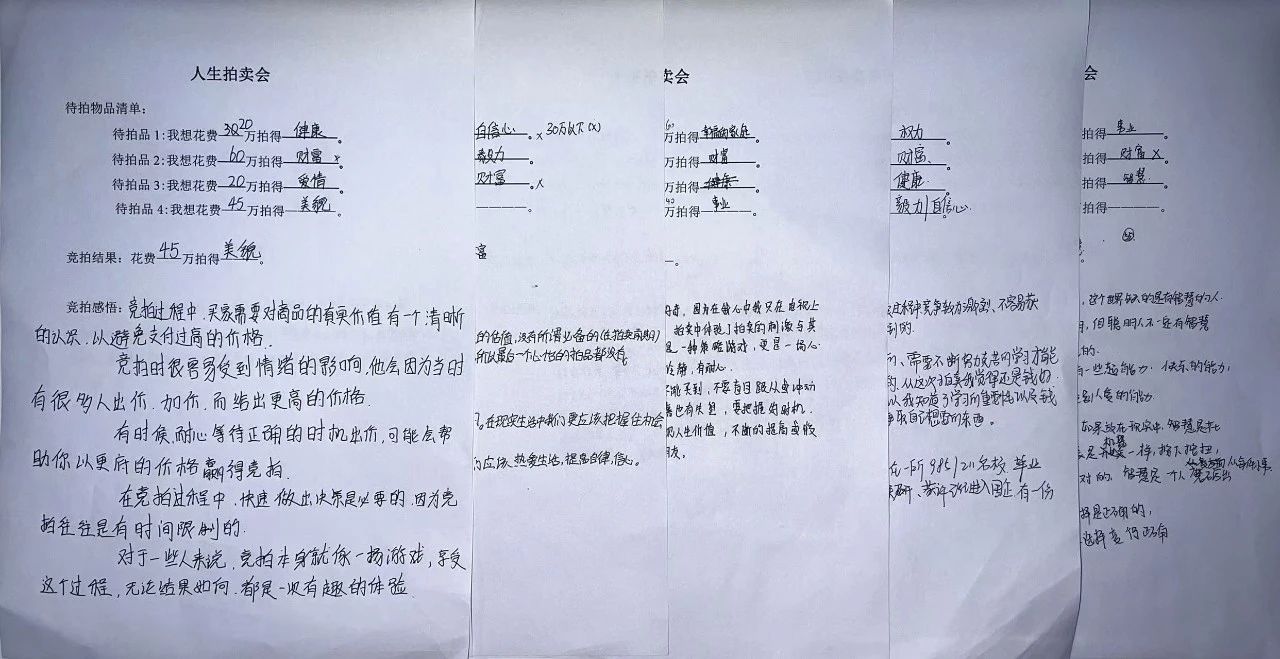 人生拍卖会
待拍物品清单：
待拍品 1：我想花费 20 万拍得 健康。
待拍品 2：我想花费 60 万拍得 财富 x。
待拍品 3：我想花费 20 万拍得 爱情。
待拍品 4：我想花费 45 万拍得 美貌。
竞拍结果：花费 45 万拍得 美貌。
竞拍感悟：竞拍过程中，买家需要对商品的真实价值有一个清晰
的认识，以避免支付过高的价格。
竞拍时很容易受到情绪的影响，他会因为当时
有很多人出价，加价，而给出更高的价格。
有时候，耐心等待正确的时机出价，可能会帮
助你以更底的价格赢得竞拍。
在竞拍过程中，快速做出决策是必要的，因为竞
拍往往是有时间限制的。
对于一些人来说，竞拍本身就像一场游戏，享受
这个过程，无论结果如何，都是一次有趣的体验
自信心。x 30万以下(x)
毅力。
财富。x
富
的估值，没有所谓必备的
所以最后一个心怡的拍品都没有
在现实生活中我们更应该把握住机会
应该，热爱生活，提高自律，信心。
卖会
万拍得 幸福的家庭
万拍得 财富。
万拍得 健康。
40万拍得 事业。
因为在信心中我只在电视上
拍卖中体验了拍卖的刺激与其
是一种策略游戏，更是一场心
冷静，有耐心。
不能买到，不要盲目跟从与冲动
也有失望，要把握好时机，
的人生价值，不断的提高与收
权力
财富、
健康。
毅力/自信心
过程中竞争较为激烈，不容易获
到的。
需要不断努力思考的学习才能
的，从这次拍卖我觉得还是钱的
以我知道了学习的重要性以及钱
争取自己想要的东西。
一所985/211名校 毕业
进入国企 有一份
会
拍得 事业。
拍得 财富 X。
拍得 智慧。
拍得 。
这个世界缺的是有智慧的人
但聪明人不一定有智慧
的。
有一些超能力，快乐的能力，
别人爱的能力
如果放在现实中，智慧是比
机器
一样，指下按扭，
对的，智慧是一个人
择是正确的，
选择言行正确